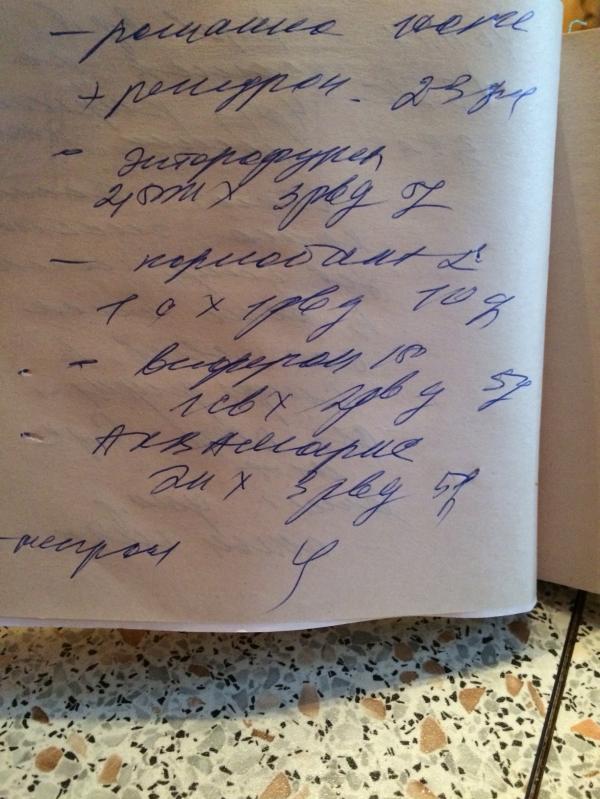 - ромашка
+ регидрон - 2-3 дня
- энтерофурил
2,5 мл х 3 р в д 5 д
- нормобакт L
1 с х 1 р в д 10 д
- виферон 150
1 св х 2 р в д 5 д
АКВАмарис
х 3 р в д 5 д